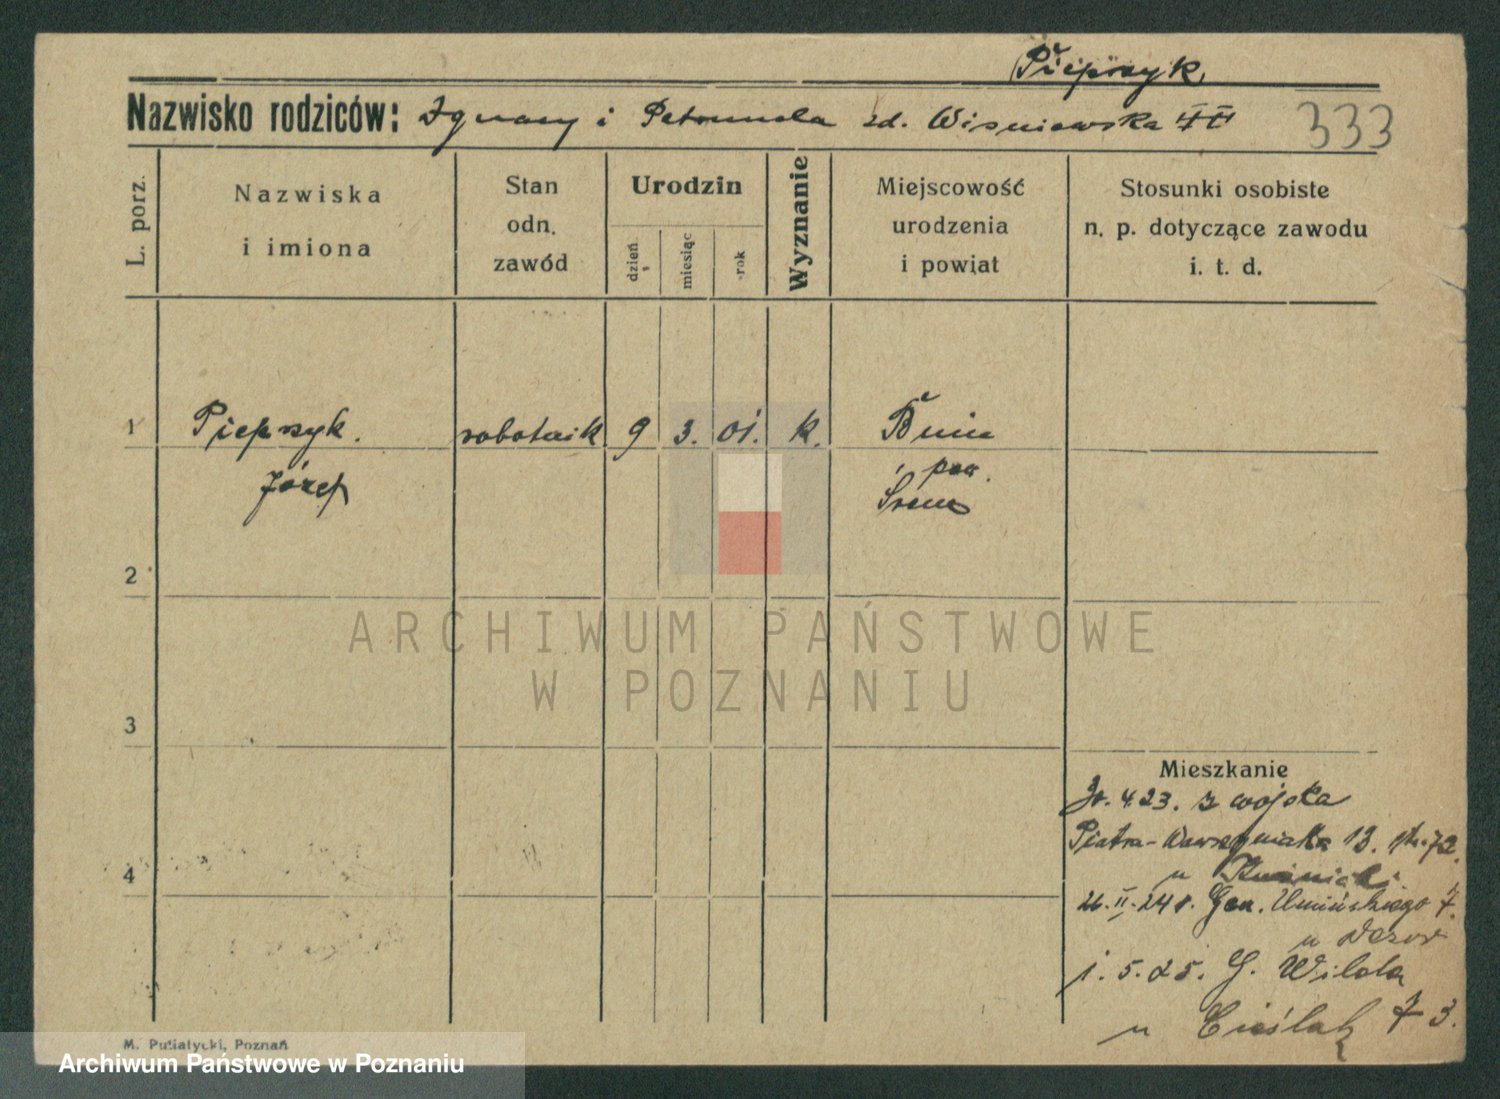 Piepszyk
Nazwisko rodziców: Ignacy i Petronela zd. Wiśniewska
333
L. porz.
Nazwiska
i imiona
Stan
odn.
zawód
Urodzin
dzień
miesiąc
rok
Wyznanie
Miejscowość
urodzenia
i powiat
Stosunki osobiste
n. p. dotyczące zawodu
i. t. d.
1 Piepszyk. robotnik 9 3. 01. k. Bnin
Józef pow.
Śrem
2
3
4
Mieszkanie
4.23. z wojska
Piotra-Wawrzyniaka 13. 72.
u
26.II.24 r. Gen. Umińskiego 7.
u
1.5.25. G. Wilda
u Cieślak 73.
ARCHIWUM PAŃSTWOWE
W POZNANIU
M. Putiatycki, Poznań
Archiwum Państwowe w Poznaniu